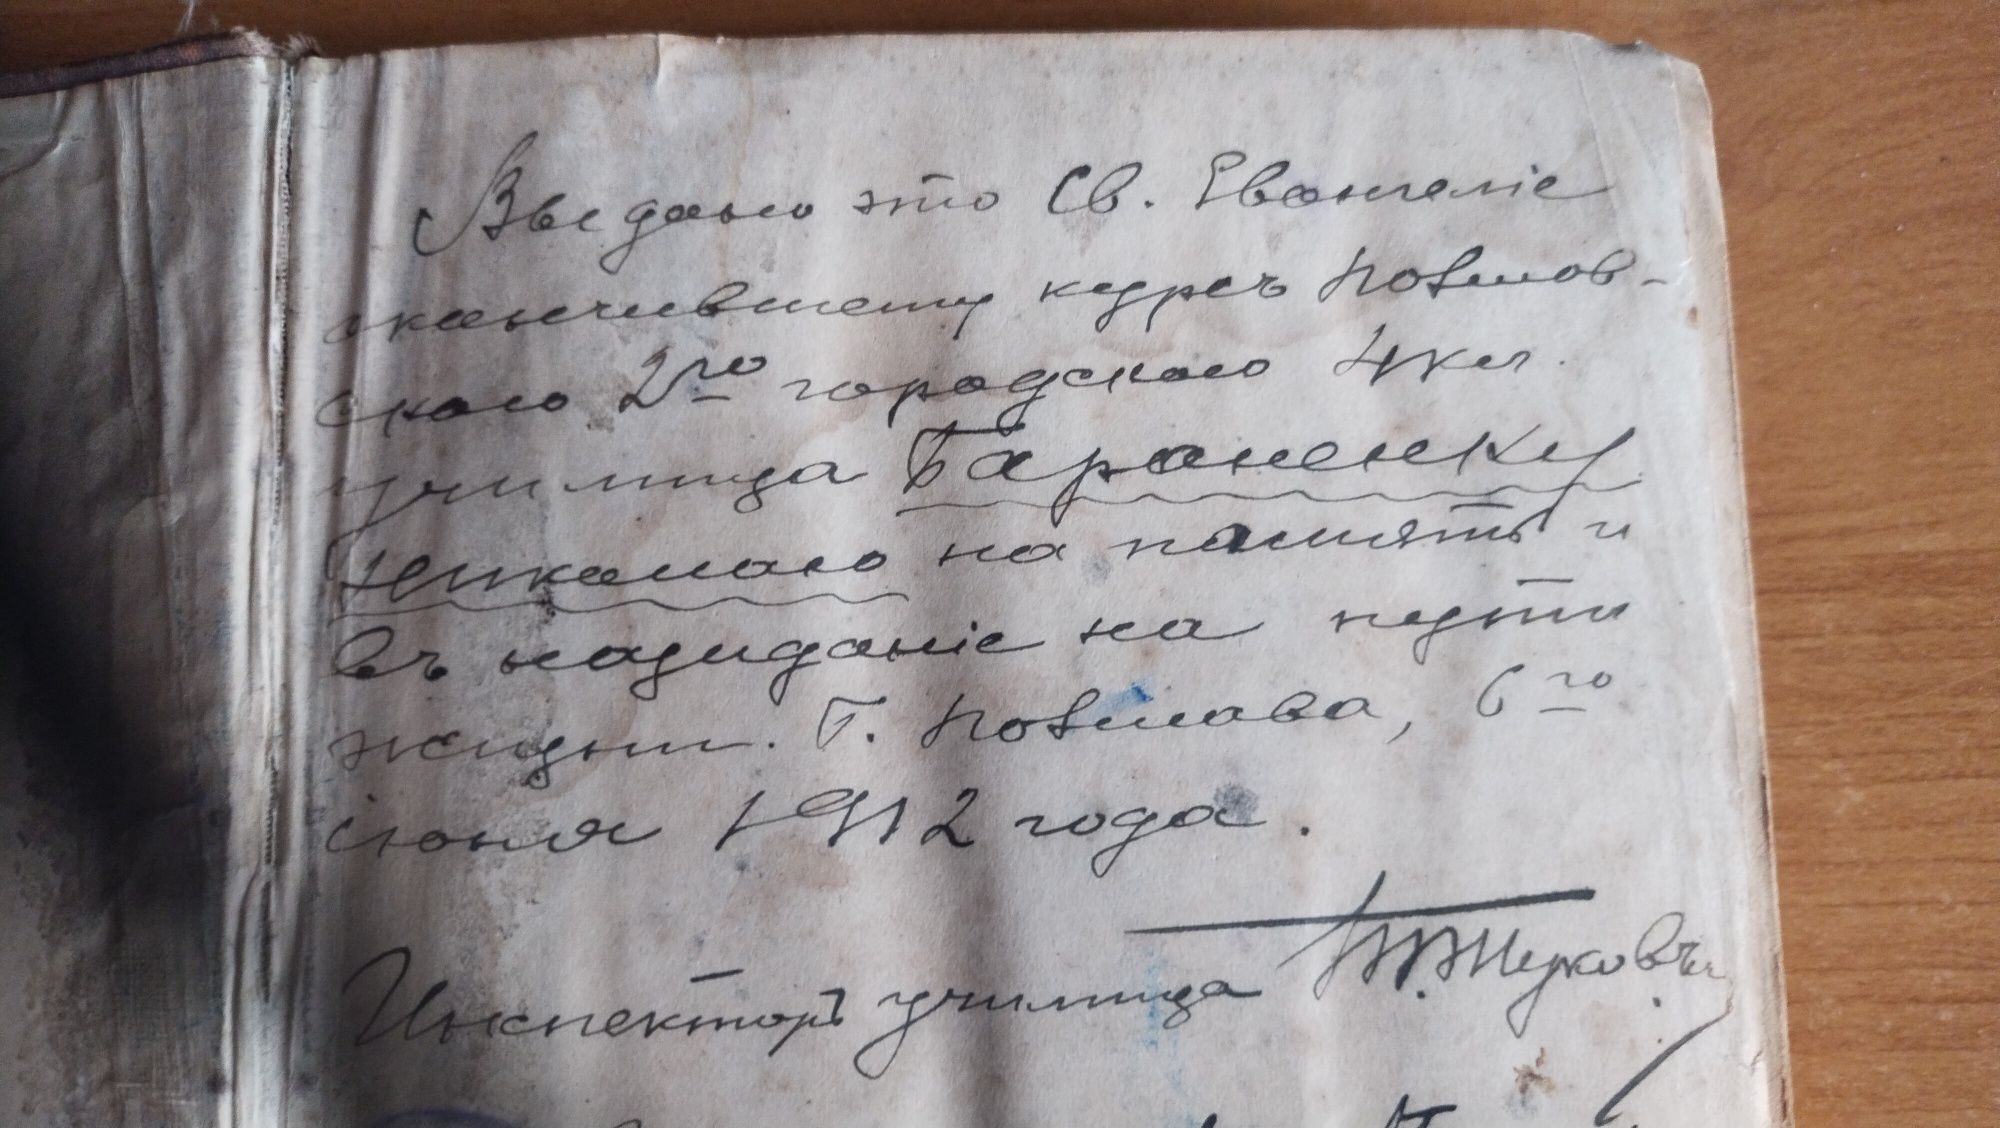 Выдано это Св. Евангеліе
окончившему курсъ Полтав-
скаго 2го городского 4 кл.
училища Бараненку
Николаю на память и
въ назиданіе на пути
жизни. Г. Полтава, 6го
іюня 1912 года.
Инспекторъ училища